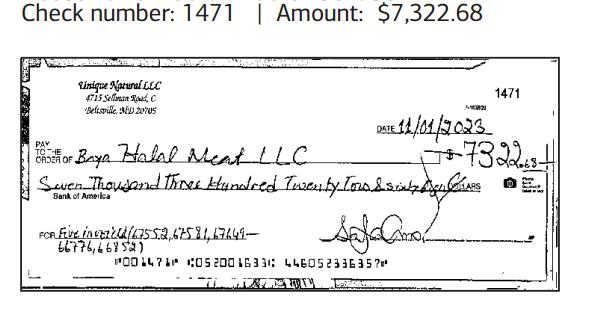 Check number: 1471 | Amount: $7,322.68
Unique Natural LLC
4715 Sellman Road, C
Beltsville, MD 20705
1471
DATE 11/01/2023
PAY
TO THE
ORDER OF Baya Halal Meat LLC $ 7322.68
Seven Thousand Three Hundred Twenty Two & sixty DOLLARS
Bank of America
FOR Five 67552, 67581, 67649
66776, 66852)
⑈001471⑈ ⑆052001633⑆ 446052336357⑈